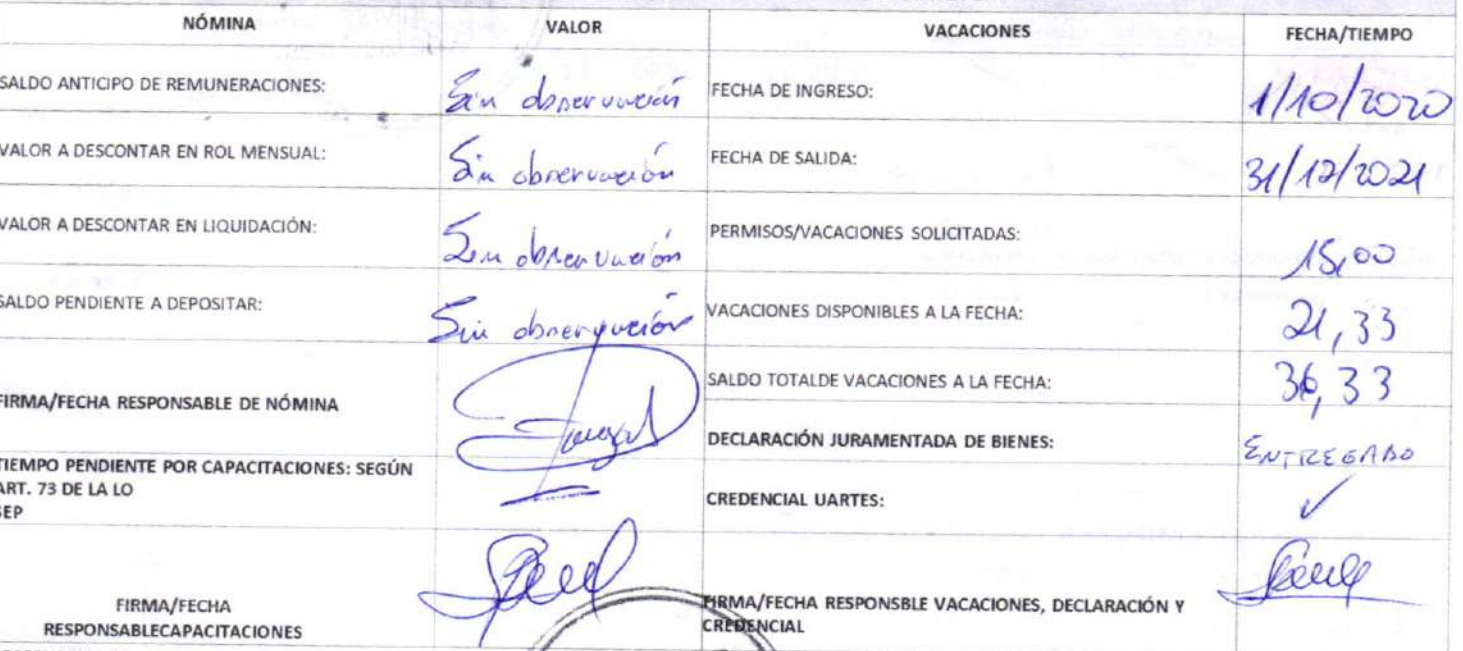 NÓMINA VALOR VACACIONES FECHA/TIEMPO
SALDO ANTICIPO DE REMUNERACIONES: Sin observación FECHA DE INGRESO: 1/10/2020
VALOR A DESCONTAR EN ROL MENSUAL: Sin observación FECHA DE SALIDA: 31/12/2021
VALOR A DESCONTAR EN LIQUIDACIÓN: Sin observación PERMISOS/VACACIONES SOLICITADAS: 15,00
SALDO PENDIENTE A DEPOSITAR: Sin observación VACACIONES DISPONIBLES A LA FECHA: 21,33
SALDO TOTALDE VACACIONES A LA FECHA: 36,33
FIRMA/FECHA RESPONSABLE DE NÓMINA
DECLARACIÓN JURAMENTADA DE BIENES: ENTREGADO
TIEMPO PENDIENTE POR CAPACITACIONES: SEGÚN
ART. 73 DE LA LO
SEP
CREDENCIAL UARTES: ✓
FIRMA/FECHA
RESPONSABLECAPACITACIONES
FIRMA/FECHA RESPONSBLE VACACIONES, DECLARACIÓN Y
CREDENCIAL